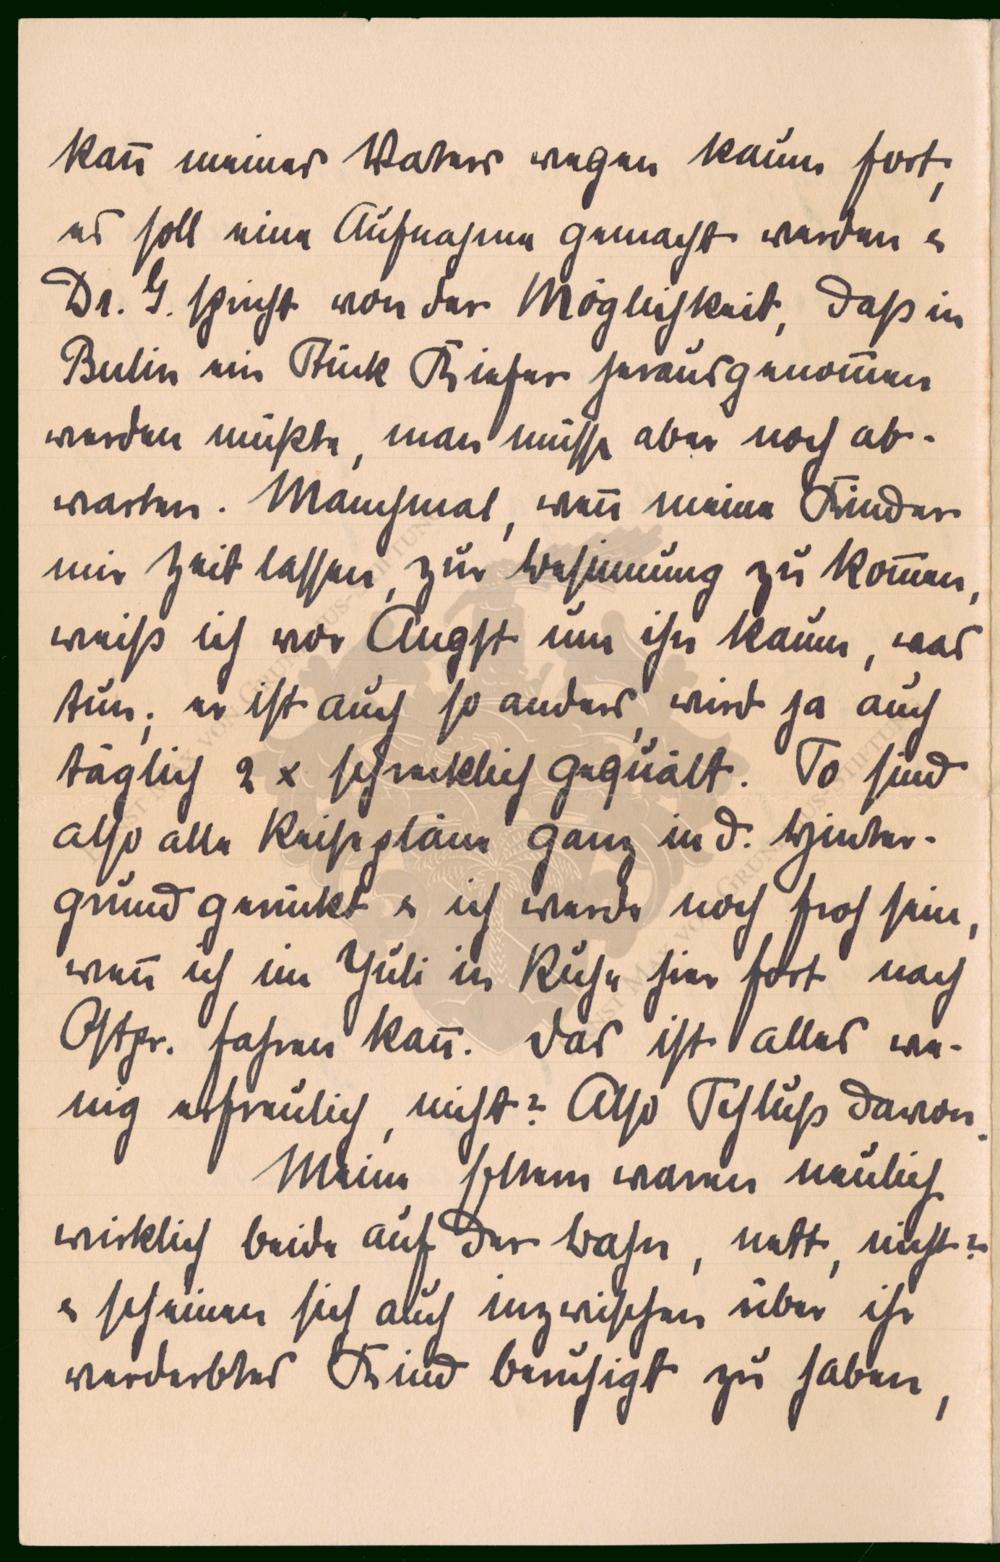 kan̄ meines Vaters wegen kaum fort,
es soll eine Aufnahme gemacht werden &
Dr. G. spricht von der Möglichkeit, daß in
Berlin ein Stück Kiefer herausgenom̄en
werden müßte, man müsse aber noch ab-
warten. Manchmal, wen̄ meine Kinder
mir Zeit lassen, zur Besinnung zu kom̄en,
weiß ich vor Angst um ihn kaum, was
tun; er ist auch so anders, wird ja auch
täglich 2 x schrecklich gequält. So sind
also alle Reisepläne ganz in d. Hinter-
grund gerückt & ich werde noch froh sein,
wen̄ ich im Juli in Ruhe hier fort nach
Ostpr. fahren kan̄. Das ist alles we-
nig erfreulich, nicht? Also Schluß davon.
Meine Eltern waren neulich
wirklich beide auf der Bahn, nett, nicht?
& scheinen sich auch inzwischen über ihr
verderbtes Kind beruhigt zu haben,